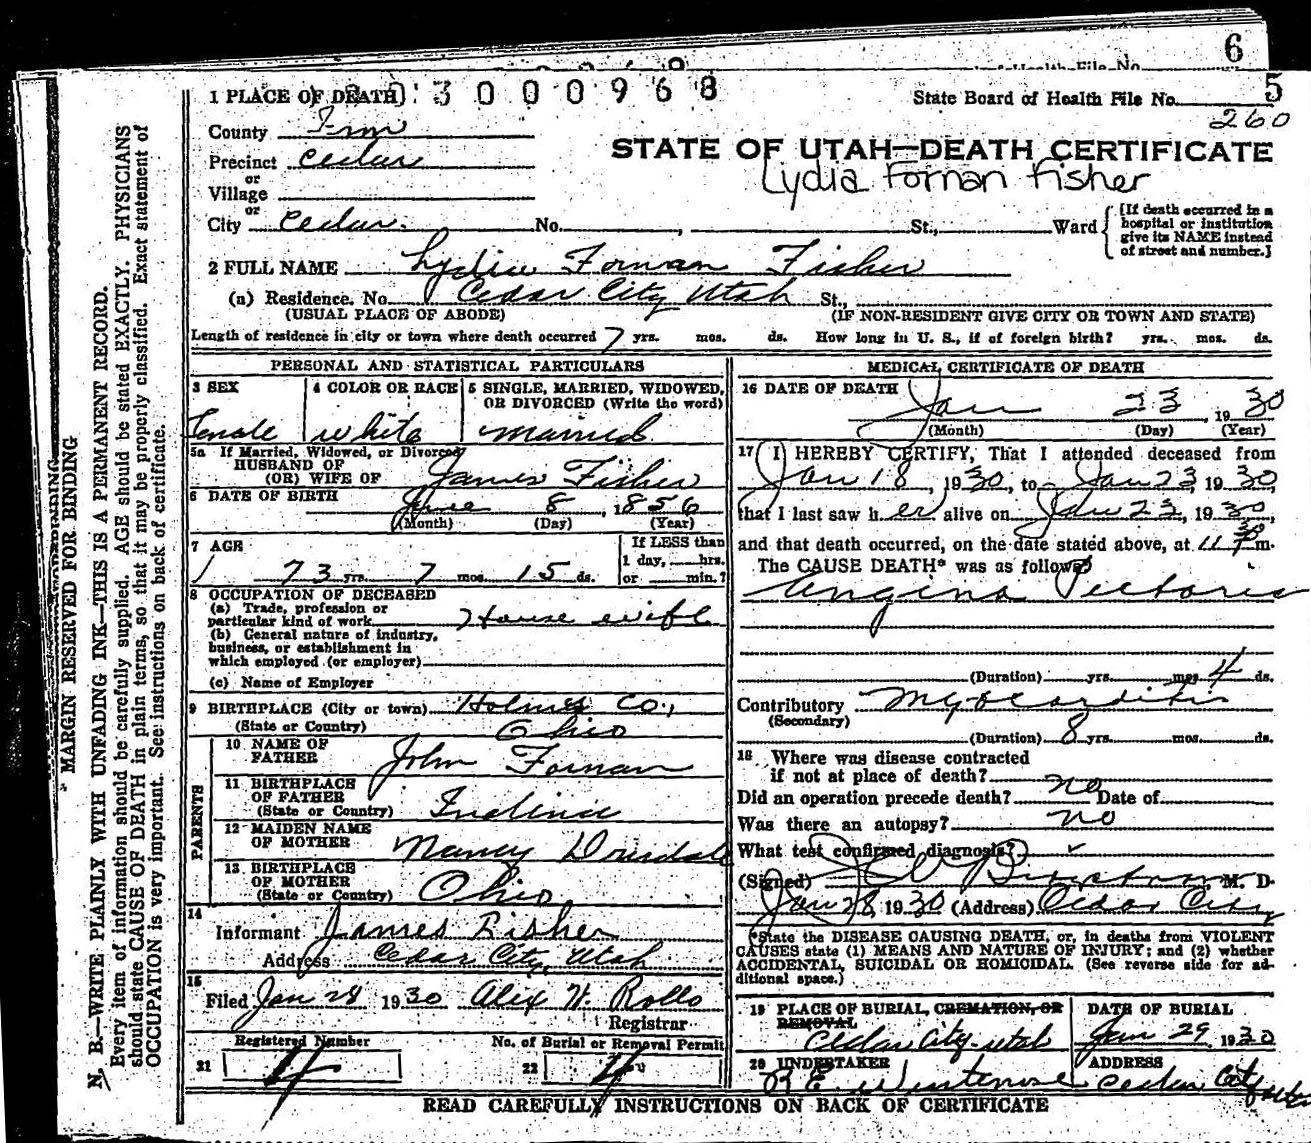 6
State Board of Health File No. 5
260
1 PLACE OF DEATH
3 0 0 0 9 6 8
County Iron
Precinct Cedar
or
Village
or
City Cedar. No. , St., Ward
[If death occurred in a
hospital or institution
give its NAME instead
of street and number.]
STATE OF UTAH—DEATH CERTIFICATE
Lydia Fornan Fisher
2 FULL NAME Lydia Fornan Fisher
(a) Residence. No. Cedar City Utah St.,
(USUAL PLACE OF ABODE) (IF NON-RESIDENT GIVE CITY OR TOWN AND STATE)
Length of residence in city or town where death occurred 7 yrs. mos. ds. How long in U. S., if of foreign birth? yrs. mos. ds.
PERSONAL AND STATISTICAL PARTICULARS
3 SEX
Female
4 COLOR OR RACE
white
5 SINGLE, MARRIED, WIDOWED,
OR DIVORCED (Write the word)
married
5a If Married, Widowed, or Divorced
HUSBAND OF
(OR) WIFE OF James Fisher
6 DATE OF BIRTH June 8, 1856
(Month) (Day) (Year)
7 AGE
73 yrs. 7 mos. 15 ds.
If LESS than
1 day, hrs.
or min.?
8 OCCUPATION OF DECEASED
(a) Trade, profession or
particular kind of work House wife
(b) General nature of industry,
business, or establishment in
which employed (or employer)
(c) Name of Employer
9 BIRTHPLACE (City or town) Holmes Co.,
(State or Country) Ohio
PARENTS
10 NAME OF
FATHER John Fornan
11 BIRTHPLACE
OF FATHER
(State or Country) Indiana
12 MAIDEN NAME
OF MOTHER Nancy
13 BIRTHPLACE
OF MOTHER
(State or Country) Ohio
14
Informant James Fisher
Address Cedar City, Utah
15
Filed Jan 28 1930 Alex H. Rollo
Registrar
Registered Number
21 4
No. of Burial or Removal Permit
22 4
MEDICAL CERTIFICATE OF DEATH
16 DATE OF DEATH
Jan 23 1930
(Month) (Day) (Year)
17 I HEREBY CERTIFY, That I attended deceased from
Jan 18, 1930, to Jan 23, 1930
that I last saw her alive on Jan 23, 1930,
and that death occurred, on the date stated above, at 11 30 m.
The CAUSE DEATH* was as follows
Angina Pectoris
(Duration) yrs. mos. 4 ds.
Contributory Myocarditis
(Secondary)
(Duration) 8 yrs. mos. ds.
18 Where was disease contracted
if not at place of death?
Did an operation precede death? no Date of
Was there an autopsy? no
What test confirmed diagnosis?
(Signed) M. D.
Jan 28, 1930 (Address) Cedar City
*State the DISEASE CAUSING DEATH, or, in deaths from VIOLENT
CAUSES state (1) MEANS AND NATURE OF INJURY; and (2) whether
ACCIDENTAL, SUICIDAL OR HOMICIDAL. (See reverse side for ad-
ditional space.)
19 PLACE OF BURIAL, CREMATION, OR
REMOVAL
Cedar City-Utah
DATE OF BURIAL
Jan 29, 1930
20 UNDERTAKER
ADDRESS
Cedar City Utah
READ CAREFULLY INSTRUCTIONS ON BACK OF CERTIFICATE
MARGIN RESERVED FOR BINDING
N. B.—WRITE PLAINLY WITH UNFADING INK—THIS IS A PERMANENT RECORD.
Every item of information should be carefully supplied. AGE should be stated EXACTLY. PHYSICIANS
should state CAUSE OF DEATH in plain terms, so that it may be properly classified. Exact statement of
OCCUPATION is very important. See instructions on back of certificate.